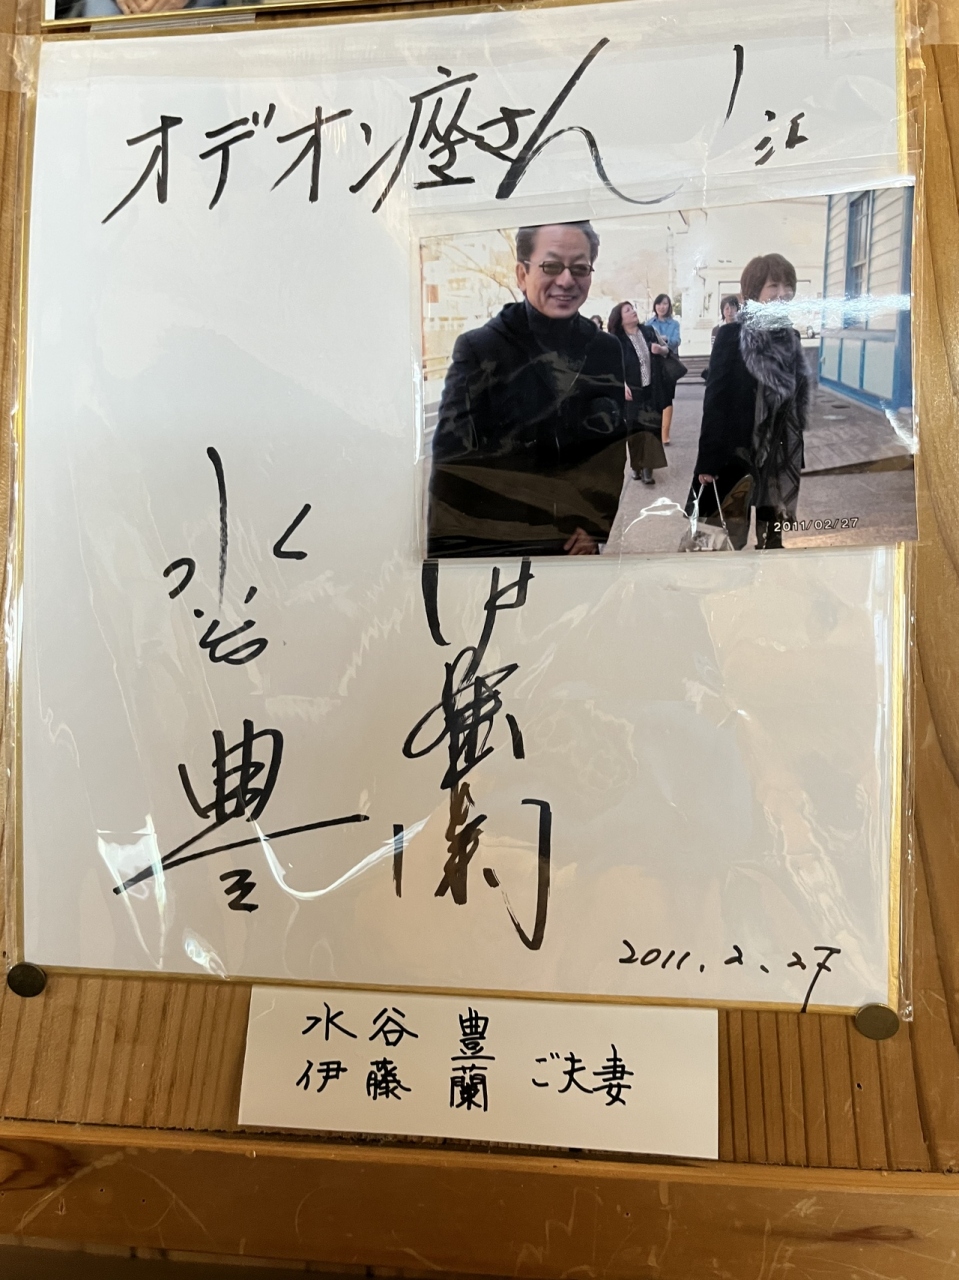 オデオン座さん江
2011/02/27
水谷豊
伊藤蘭
2011.2.27
水谷 豊
伊藤 蘭 ご夫妻